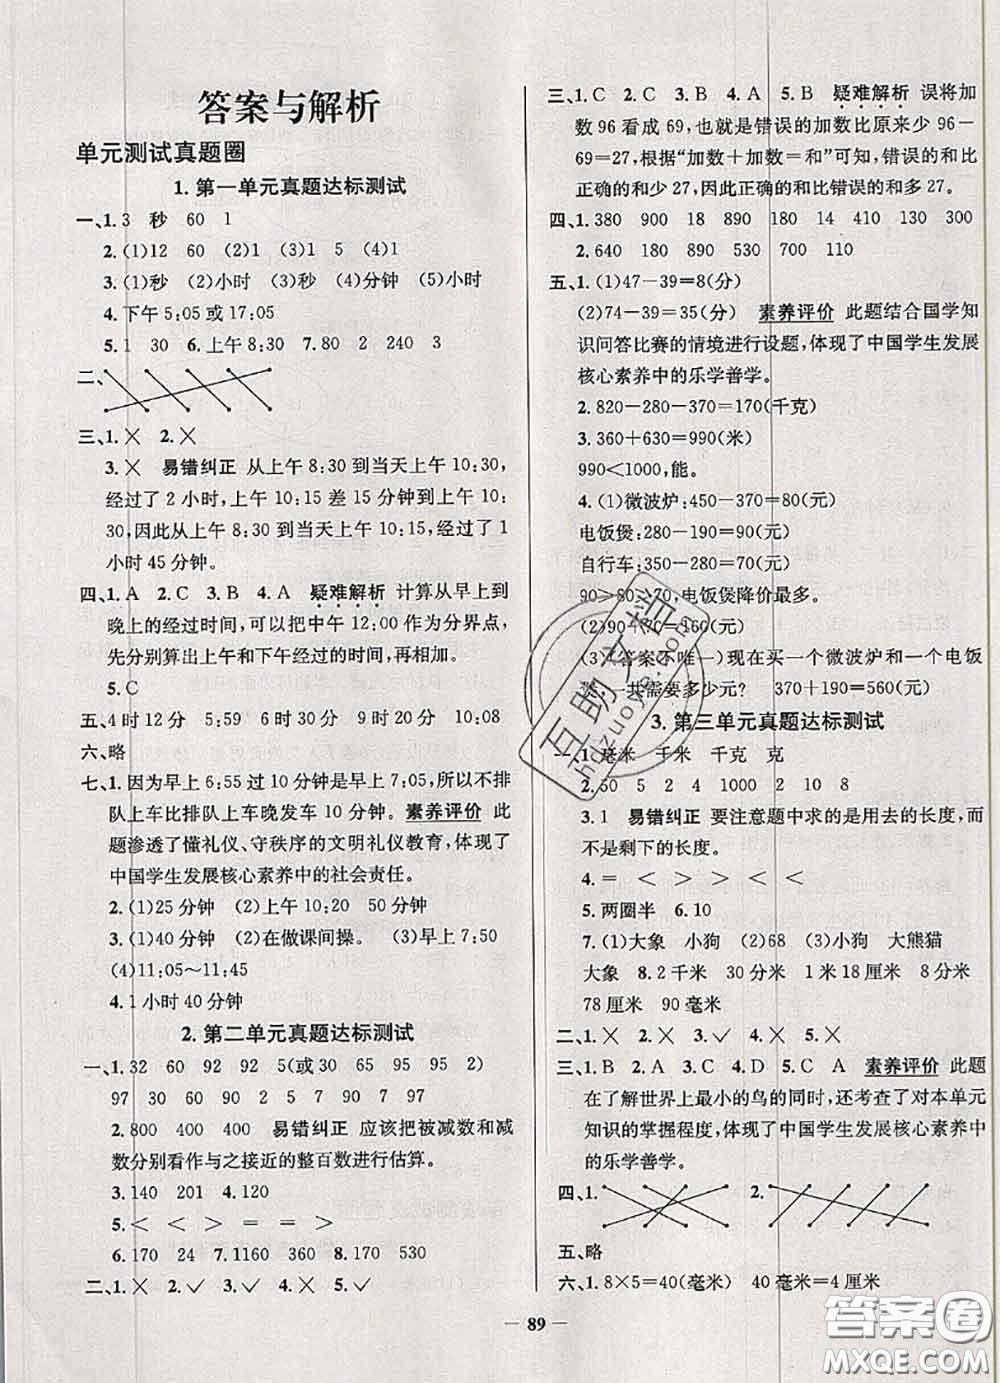 答案与解析
单元测试真题圈
1. 第一单元真题达标测试
一、1.3 秒 60 1
2.(1)12 60 (2)1 (3)1 5 (4)1
3.(1)秒 (2)小时 (3)秒 (4)分钟 (5)小时
4.下午 5:05 或 17:05
5.1 30 6.上午 8:30 7.80 2 240 3
二、
三、1.╳ 2.╳
3.╳ 易错纠正 从上午 8:30 到当天上午 10:30,
经过了 2 小时,上午 10:15 差 15 分钟到上午 10:
30,因此从上午 8:30 到当天上午 10:15,经过了 1
小时 45 分钟。
四、1.A 2.C 3.B 4.A 疑难解析 计算从早上到
晚上的经过时间,可以把中午 12:00 作为分界点,
先分别算出上午和下午经过的时间,再相加。
5.C
五、4 时 12 分 5:59 6 时 30 分 9 时 20 分 10:08
六、略
七、1.因为早上 6:55 过 10 分钟是早上 7:05,所以不排
队上车比排队上车晚发车 10 分钟。素养评价 此
题渗透了懂礼仪、守秩序的文明礼仪教育,体现了
中国学生发展核心素养中的社会责任。
2.(1)25 分钟 (2)上午 10:20 50 分钟
3.(1)40 分钟 (2)在做课间操。 (3)早上 7:50
(4)11:05～11:45
4.1 小时 40 分钟
2. 第二单元真题达标测试
一、1.32 60 92 92 5(或 30 65 95 95 2)
97 30 60 90 2 5 7 90 7 97
2.800 400 400 易错纠正 应该把被减数和减
数分别看作与之接近的整百数进行估算。
3.140 201 4.120
5.< < > = = >
6.170 24 7.1160 360 8.170 530
二、1.╳ 2.✓ 3.✓ 4.╳ 5.✓
三、1.C 2.C 3.B 4.A 5.B 疑难解析 误将加
数 96 看成 69,也就是错误的加数比原来少 96－
69＝27,根据“加数＋加数＝和”可知,错误的和比
正确的和少 27,因此正确的和比错误的和多 27。
四、1.380 900 18 890 180 14 410 130 300
2.640 180 890 530 700 110
五、1.(1)47－39＝8(分)
(2)74－39＝35(分) 素养评价 此题结合国学知
识问答比赛的情境进行设题,体现了中国学生发展
核心素养中的乐学善学。
2.820－280－370＝170(千克)
3.360＋630＝990(米)
990<1000,能。
4.(1)微波炉:450－370＝80(元)
电饭煲:280－190＝90(元)
自行车:350－280＝70(元)
90>80>70,电饭煲降价最多。
(2)90＋70＝160(元)
(3)(答案不唯一)现在买一个微波炉和一个电饭
一共需要多少元? 370＋190＝560(元)
3. 第三单元真题达标测试
一、1.毫米 千米 千克 克
2.50 5 2 4 1000 2 10 8
3.1 易错纠正 要注意题中求的是用去的长度,而
不是剩下的长度。
4.＝ < > > < <
5.两圈半 6.10
7.(1)大象 小狗 (2)68 (3)小狗 大熊猫
大象 8.2 千米 30 分米 1 米 18 厘米 8 分米
78 厘米 90 毫米
二、1.╳ 2.╳ 3.✓ 4.╳ 5.╳
三、1.B 2.A 3.C 4.D 5.C A 素养评价 此题
在了解世界上最小的鸟的同时,还考查了对本单元
知识的掌握程度,体现了中国学生发展核心素养中
的乐学善学。
四、1. 2.
五、略
六、1.8×5＝40(毫米) 40 毫米＝4 厘米
— 89 —
互助文档
huzuoye.com
答案圈
MXQE.COM